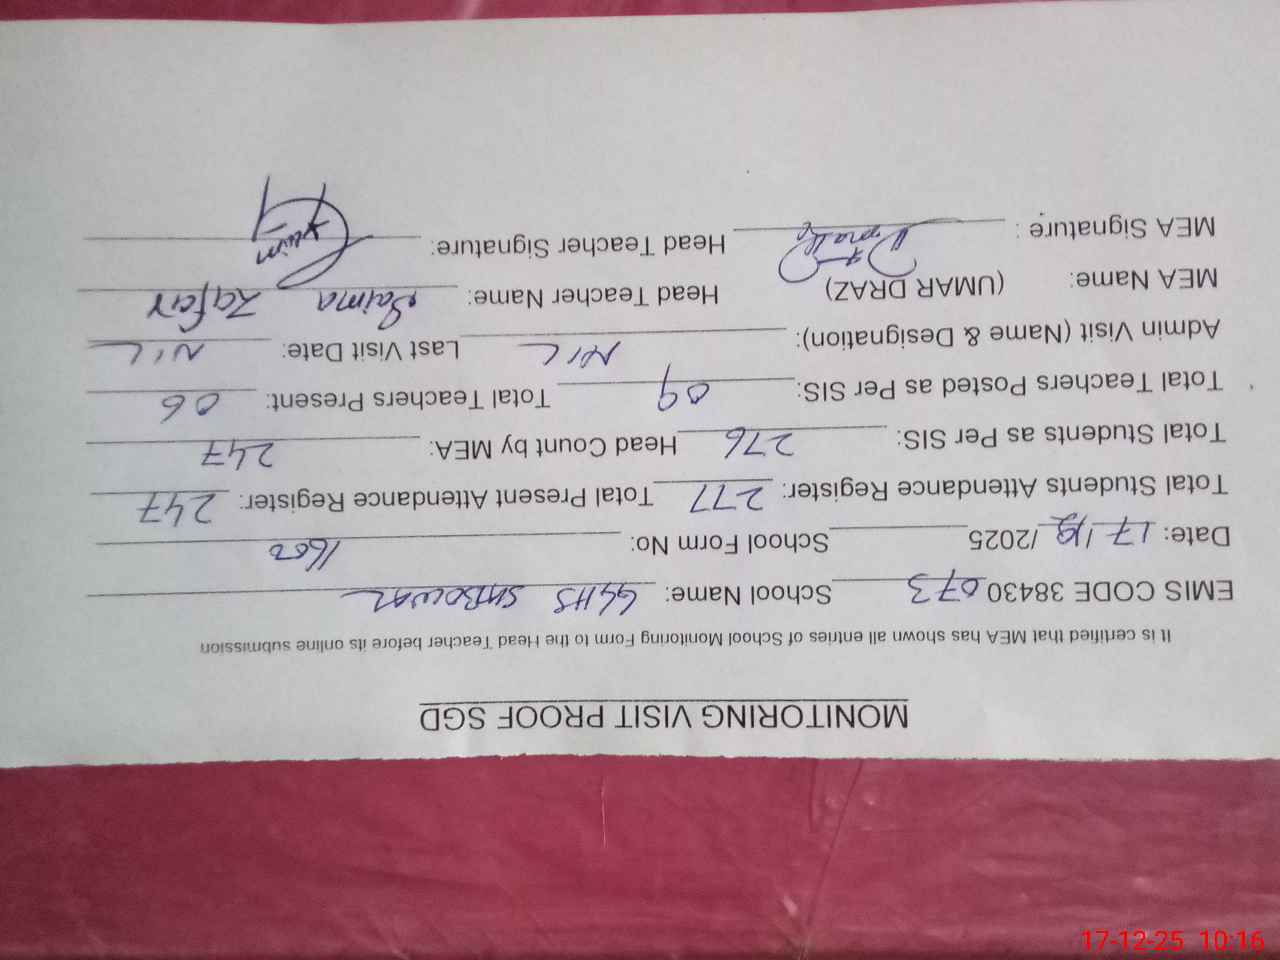 MONITORING VISIT PROOF SGD
It is certified that MEA has shown all entries of School Monitoring Form to the Head Teacher before its online submission
EMIS CODE 38430 073 School Name: GGHS
Date: 17/12/2025 School Form No: 1600
Total Students Attendance Register: 277 Total Present Attendance Register: 247
Total Students as Per SIS: 276 Head Count by MEA: 247
Total Teachers Posted as Per SIS: 09 Total Teachers Present: 06
Admin Visit (Name & Designation): NIL Last Visit Date: NIL
MEA Name: (UMAR DRAZ) Head Teacher Name: Saima Zafar
MEA Signature : Head Teacher Signature:
17-12-25 10:16